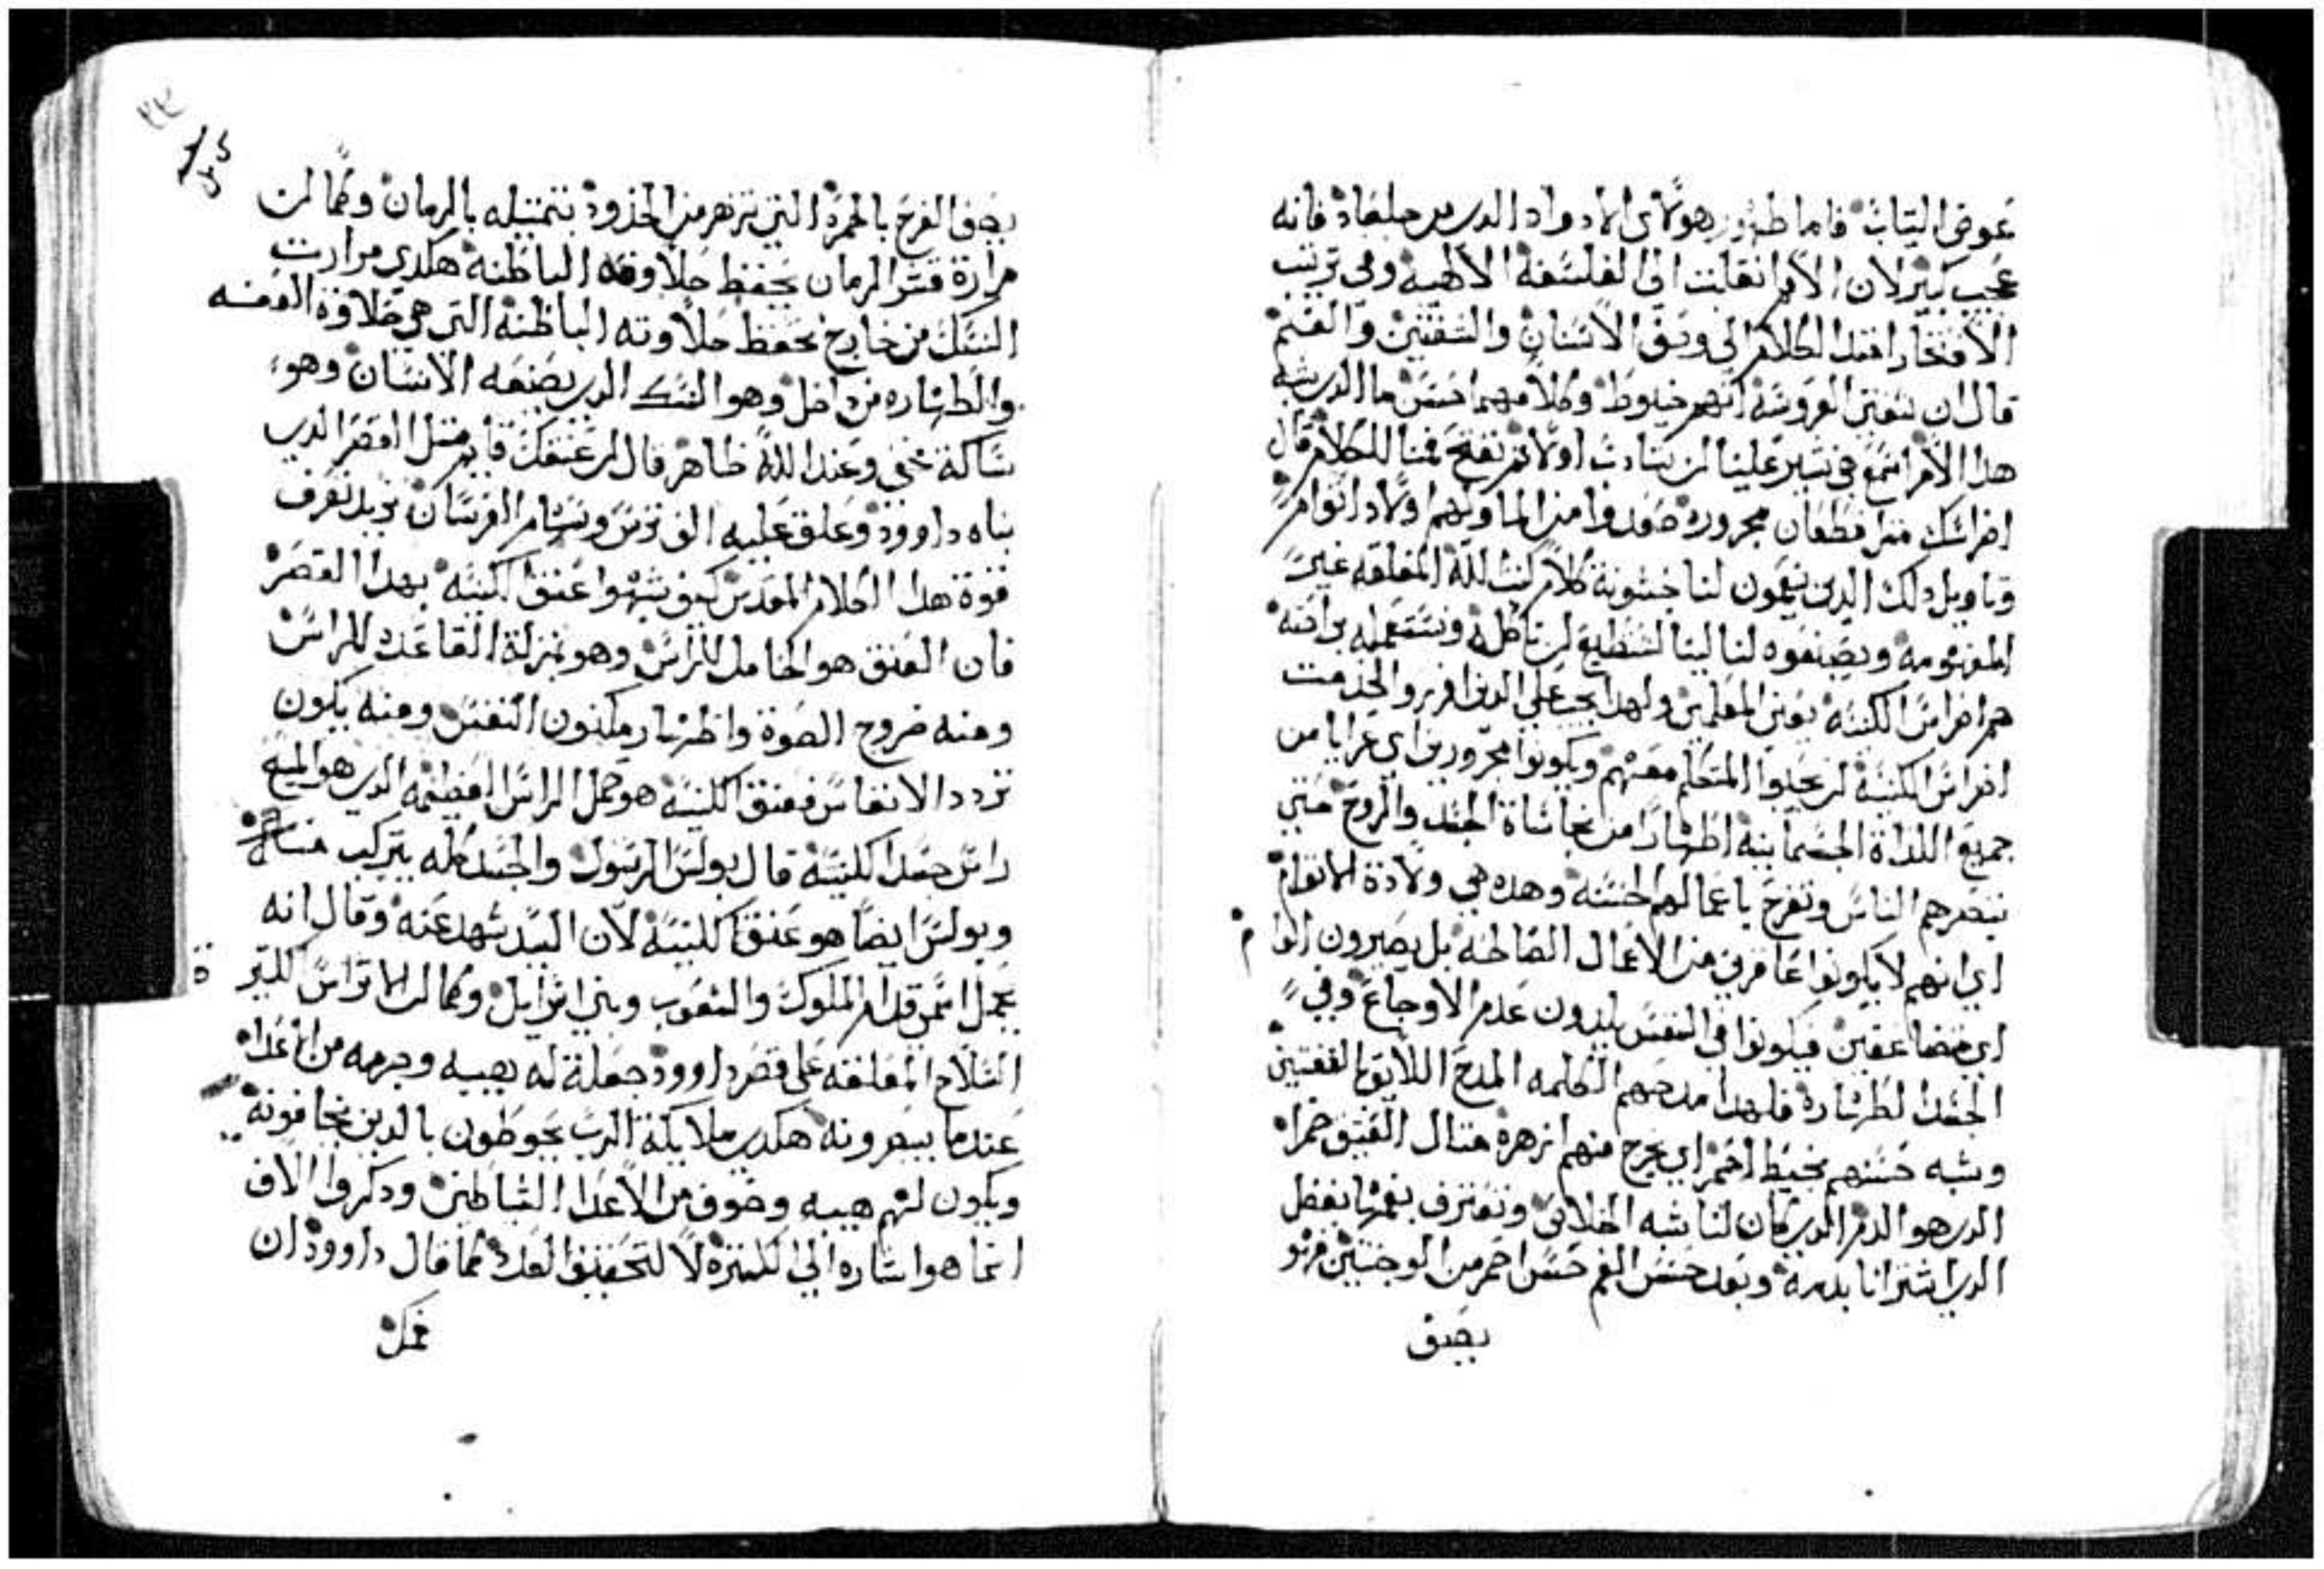 عوض التياب فاما ظهور هولاي الاولاد الدين من جلعاد فانه
عجب كبير لان الامر انقلبت الى الفلسفة الالهيه وفي ترتيب
الافتخار اقتدا الكلام الى وصف الاسنان والشفتين والفم
قال ان شفتى العروسه انهم خيوط وكلامهما حسن ما الدي يشبه
هدا الامر اسمع في تفسير علينا ان نتادب اولا تم نفتح فمنا للكلام قال
اضراسك متل قطعان مجروره صعدوا من الما وكلهم اولاد اتوام
وتاويل دلك الدين ينعمون لنا خشونة كلام كتب الله المغلقه غير
المفهومه ويصيفوه لنا لينا لنستطيع ان ناكله ونستعمله براحه
هم اضراس الكنيسه يعنى المعلمين ولهدا يجب على الدين افرزوا لخدمت
اضراس الكنيسه ان يحلوا المتعلم معهم ويكونوا مجرورين اي عرايا من
جميع اللداة الجسمانيه اطهارا من نجاساة الجسد والروح حتى
تبصرهم الناس وتفرح باعمالهم الحسنه وهده هي ولادة الاتوام
اي انهم لا يكونوا عاقرين من الاعمال الصالحه بل يصيرون اتوام
اي متضاعفين فيكونوا في النفس يلدون عدم الاوجاع وفي
الجسد الطهاره فلهدا مدحهم الكلمه المدح اللايق الشفتين
وشبه حسنهم بخيط احمر اي يخرج منهم زهرة متال القيق حمرا
الدي هو الدم الدي كان لنا شبه الخلاص ونعترف بفمها بفضل
الدي اشترانا بدمه وبعد حسن الفم حسن احمر من الوجنتين فهو
يصف
يصف الفرح بالحمرة التي تزهر من الخدود بتمتيله بالرمان وكما ان
مرارة قشر الرمان يحفظ حلاوته الباطنه هكدي مرارت
النسك من خارج تحفظ حلاوته الباطنه التي هي حلاوة العفه
والطهاره من داخل وهو النسك الدي يصنعه الانسان وهو
ساكته خفي وعند الله ظاهر قال ان عنقك قايم متل القصر الدي
بناه داوود وعلق عليه الف ترس وسهام الفرسان نريد نعرف
قوة هدا الكلام المقدس كيف يشبهوا عنق الكنيسه بهدا القصر
فان العنق هو الحامل للراس وهو بمنزلة القاعده للراس
ومنه خروج الصوة واظهار مكنون النفس ومنه يكون
تردد الانفاس فعنق الكنيسه هو حمل الراس العظيمه الدي هو المسيح
راس جسد الكنيسه قال بولس الرسول والجسد كله يتركب منه
وبولس ايضا هو عنق الكنيسه لان السيد شهد عنه وقال انه
يحمل اسمى قدام الملوك والشعوب وبنى اسرايل وكما ان الاتراس الكتيرة
السلاح المعلقه على قصر داوود جعلة له هيبه وحرمه من الاعدا
عندما يبصرونه هكدي ملايكة الرب يحوطون بالدين يخافونه
ويكون لهم هيبه وخوف من الاعدا الشياطين ودكروا الاف
انما هو اشاره الى الكتره لا لتحقيق العدد كما قال داوود ان